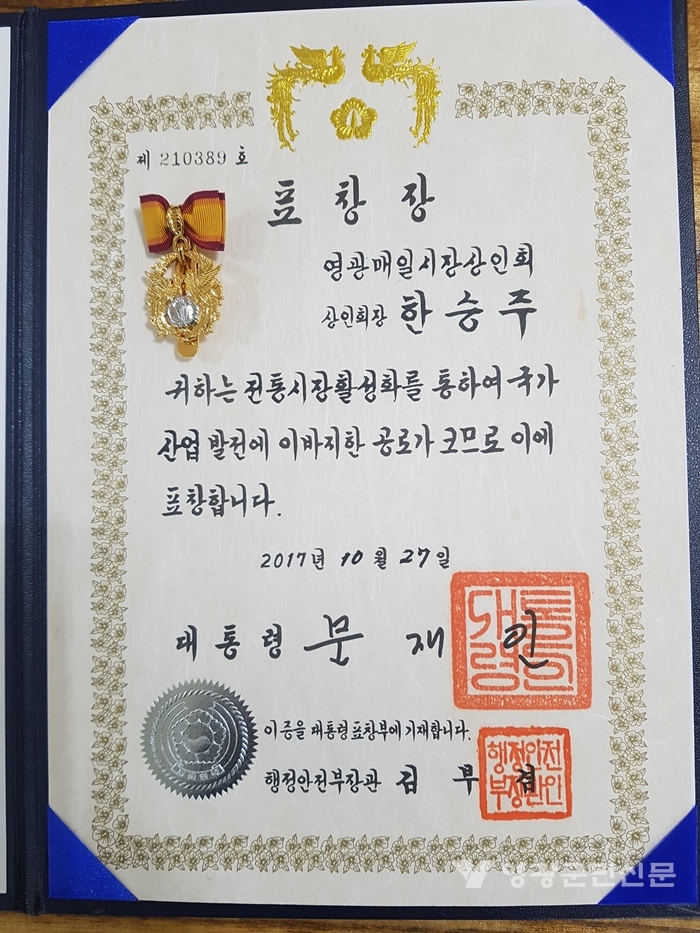 제 210389 호
표 창 장
영광매일시장상인회
상인회장 한 승 주
귀하는 전통시장활성화를 통하여 국가
산업 발전에 이바지한 공로가 크므로 이에
표창합니다.
2017년 10 월 27 일
대 통 령 문 재 인
대통령의인
이 증을 대통령표창부에 기재합니다.
행정안전부장관 김 부 겸
행정안전부장관인